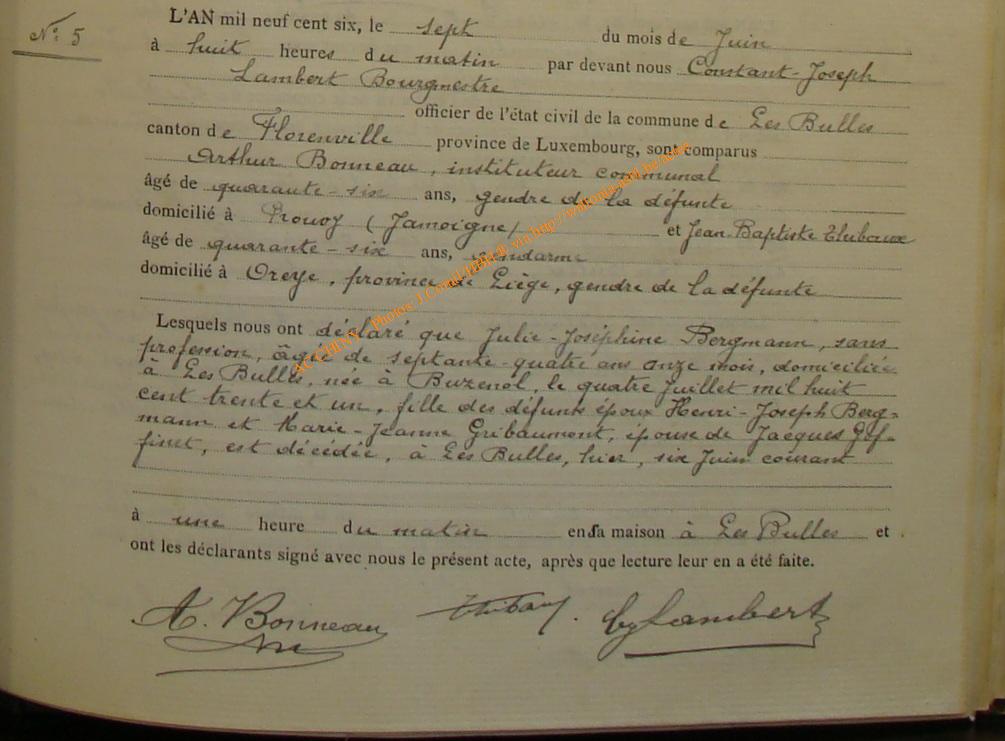 N° 5
L'AN mil neuf cent six, le sept du mois de Juin
à huit heures du matin par devant nous Constant-Joseph
Lambert Bourgmestre
officier de l'état civil de la commune de Les Bulles
canton de Florenville province de Luxembourg, sont comparus
Arthur Bonneau, instituteur communal
âgé de quarante-six ans, gendre de la défunte
domicilié à Prouvy (Jamoigne) et Jean-Baptiste Thibaux
âgé de quarante-six ans, gendarme
domicilié à Oreye, province de Liège, gendre de la défunte
Lesquels nous ont déclaré que Julie-Joséphine Bergmann, sans
profession, âgée de septante-quatre ans onze mois, domiciliée
à Les Bulles, née à Buzenol, le quatre Juillet mil huit
cent trente et un, fille des défunts époux Henri-Joseph Berg=
mann et Marie-Jeanne Gribaumont, épouse de Jacques Gof-
finet, est décédée, à Les Bulles, hier, six Juin courant
à une heure du matin en sa maison à Les Bulles et
ont les déclarants signé avec nous le présent acte, après que lecture leur en a été faite.
A. Bonneau Thibaux. Lambert